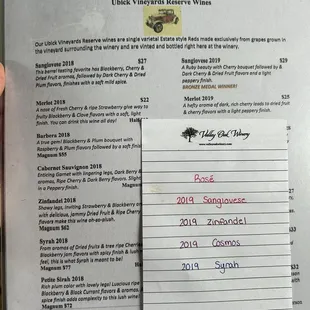 Ubick Vineyards Reserve Wines
Our Ubick Vineyards Reserve wines are single varietal Estate style Reds made exclusively from grapes grown in
the vineyard surrounding the winery and are vinted and bottled right here at the winery.
Sangiovese 2018 $27
This barrel tasting favorite has Blackberry, Cherry &
Dried Fruit aromas, followed by Dark Cherry & Dried
Plum flavors, finishes with a soft mild spice.
Merlot 2018 $22
A nose of Fresh Cherry & ripe Strawberry give way to
fruity Blackberry & Clove flavors with a soft, light
finish. You can drink this wine all day!
Barbera 2018
A true gem! Blackberry & Plum bouquet with
Raspberry & Plum flavors followed by a soft
Magnum $55
Cabernet Sauvignon 2018
Enticing Garnet with lingering legs, Dark
aromas, Ripe Cherry & Dark Berry flavors. Slight
in a Peppery finish.
Magnum
Zinfandel 2018
Showy legs, inviting Strawberry &
with delicious, jammy Dried Fruit & Ripe
flavors make this wine
Magnum $62
Syrah 2018
From aromas of Dried fruits & tree ripe
Blackberry jam flavors with spicy finish &
feel, this is what Syrah is meant to be!
Magnum $77
Petite Sirah 2018
Rich plum color with lovely legs! Luscious
Blackberry & Black Currant flavors &
spice finish adds complexity to this lush
Magnum $72
Sangiovese 2019 $29
A Ruby beauty with Cherry bouquet followed by
Dark Cherry & Dried Fruit flavors end a light
peppery finish.
BRONZE MEDAL WINNER!
Merlot 2019 $25
A hefty aroma of dark, rich cherry leads to dried fruit
& cherry flavors with a light peppery finish.
Valley Oak Winery
Rosé
2019 Sangiovese
2019 Zinfandel
2019 Cosmos
2019 Syrah
$32